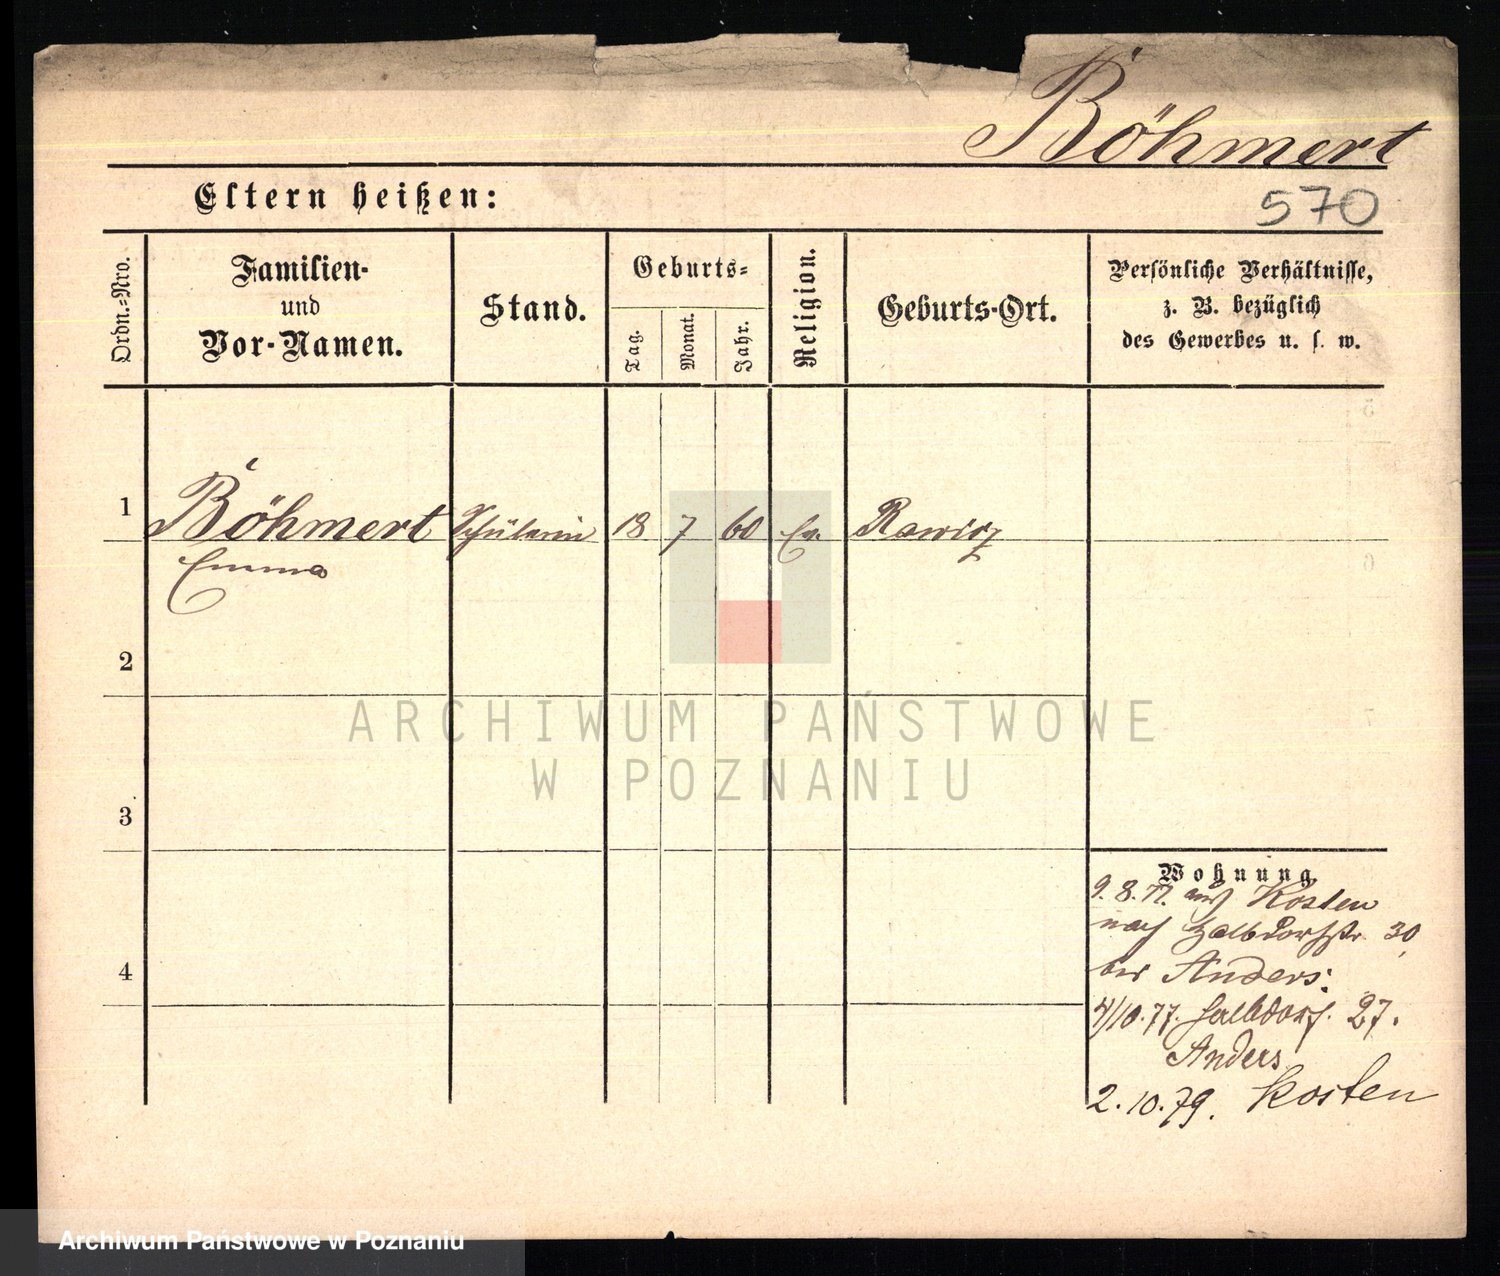 Böhmert
Eltern heißen:
570
Ordn.-Nro.
Familien-
und
Vor-Namen.
Stand.
Geburts-
Tag.
Monat.
Jahr.
Religion.
Geburts-Ort.
Persönliche Verhältnisse,
z. B. bezüglich
des Gewerbes u. s. w.
1
Böhmert Schülerin 18 7 60 Ev. Rawicz
Emma
2
ARCHIWUM PAŃSTWOWE
W POZNANIU
3
Wohnung
9.8.77. aus Kosten
nach Halbdorfstr. 30,
bei Anders.
4
4/10.77. Halbdorf. 27.
Anders
2.10.79. Kosten
Archiwum Państwowe w Poznaniu